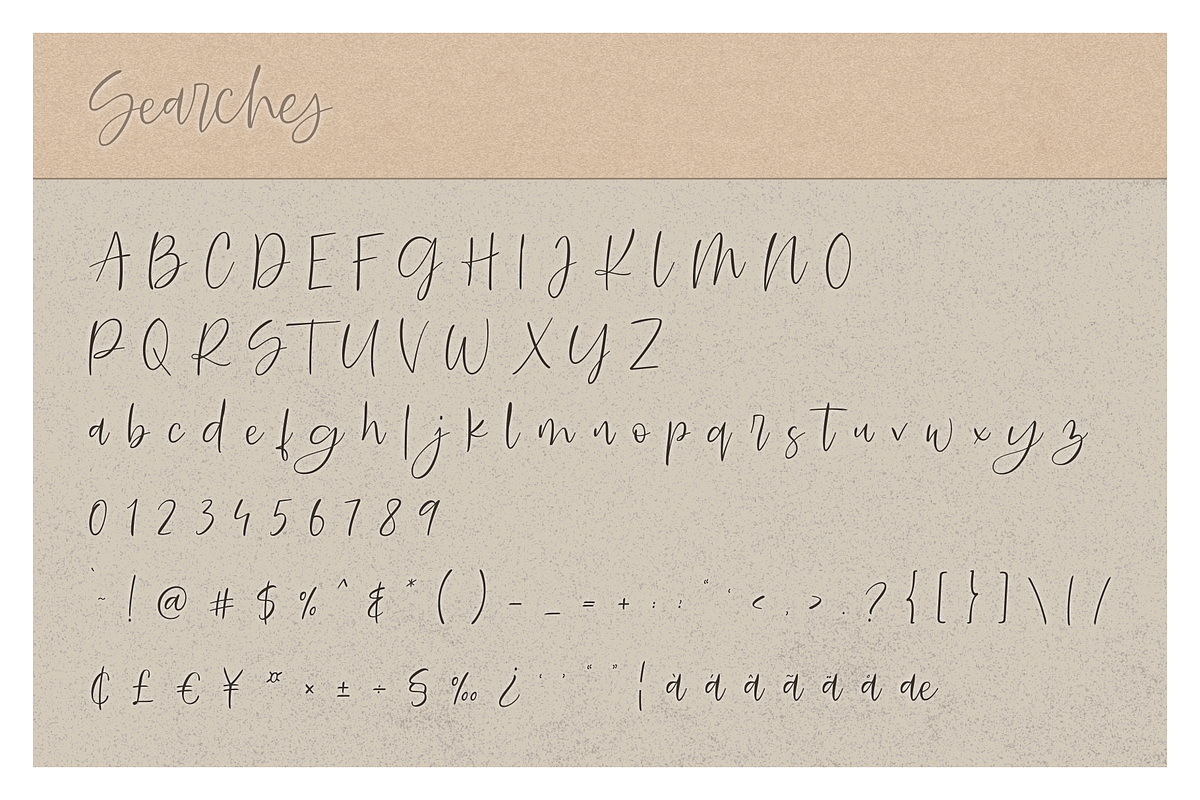 Searches
A B C D E F G H I J K L M N O
P Q R S T U V W X Y Z
a b c d e f g h i j k l m n o p q r s t u v w x y z
0 1 2 3 4 5 6 7 8 9
` ~ ! @ # $ % ^ & * ( ) - _ = + : ; " ' < , > . ? { [ } ] \ | /
¢ £ € ¥ ¤ × ± ÷ § ‰ ¿ ‘ ’ “ ” ¦ à á â ã ä å æ